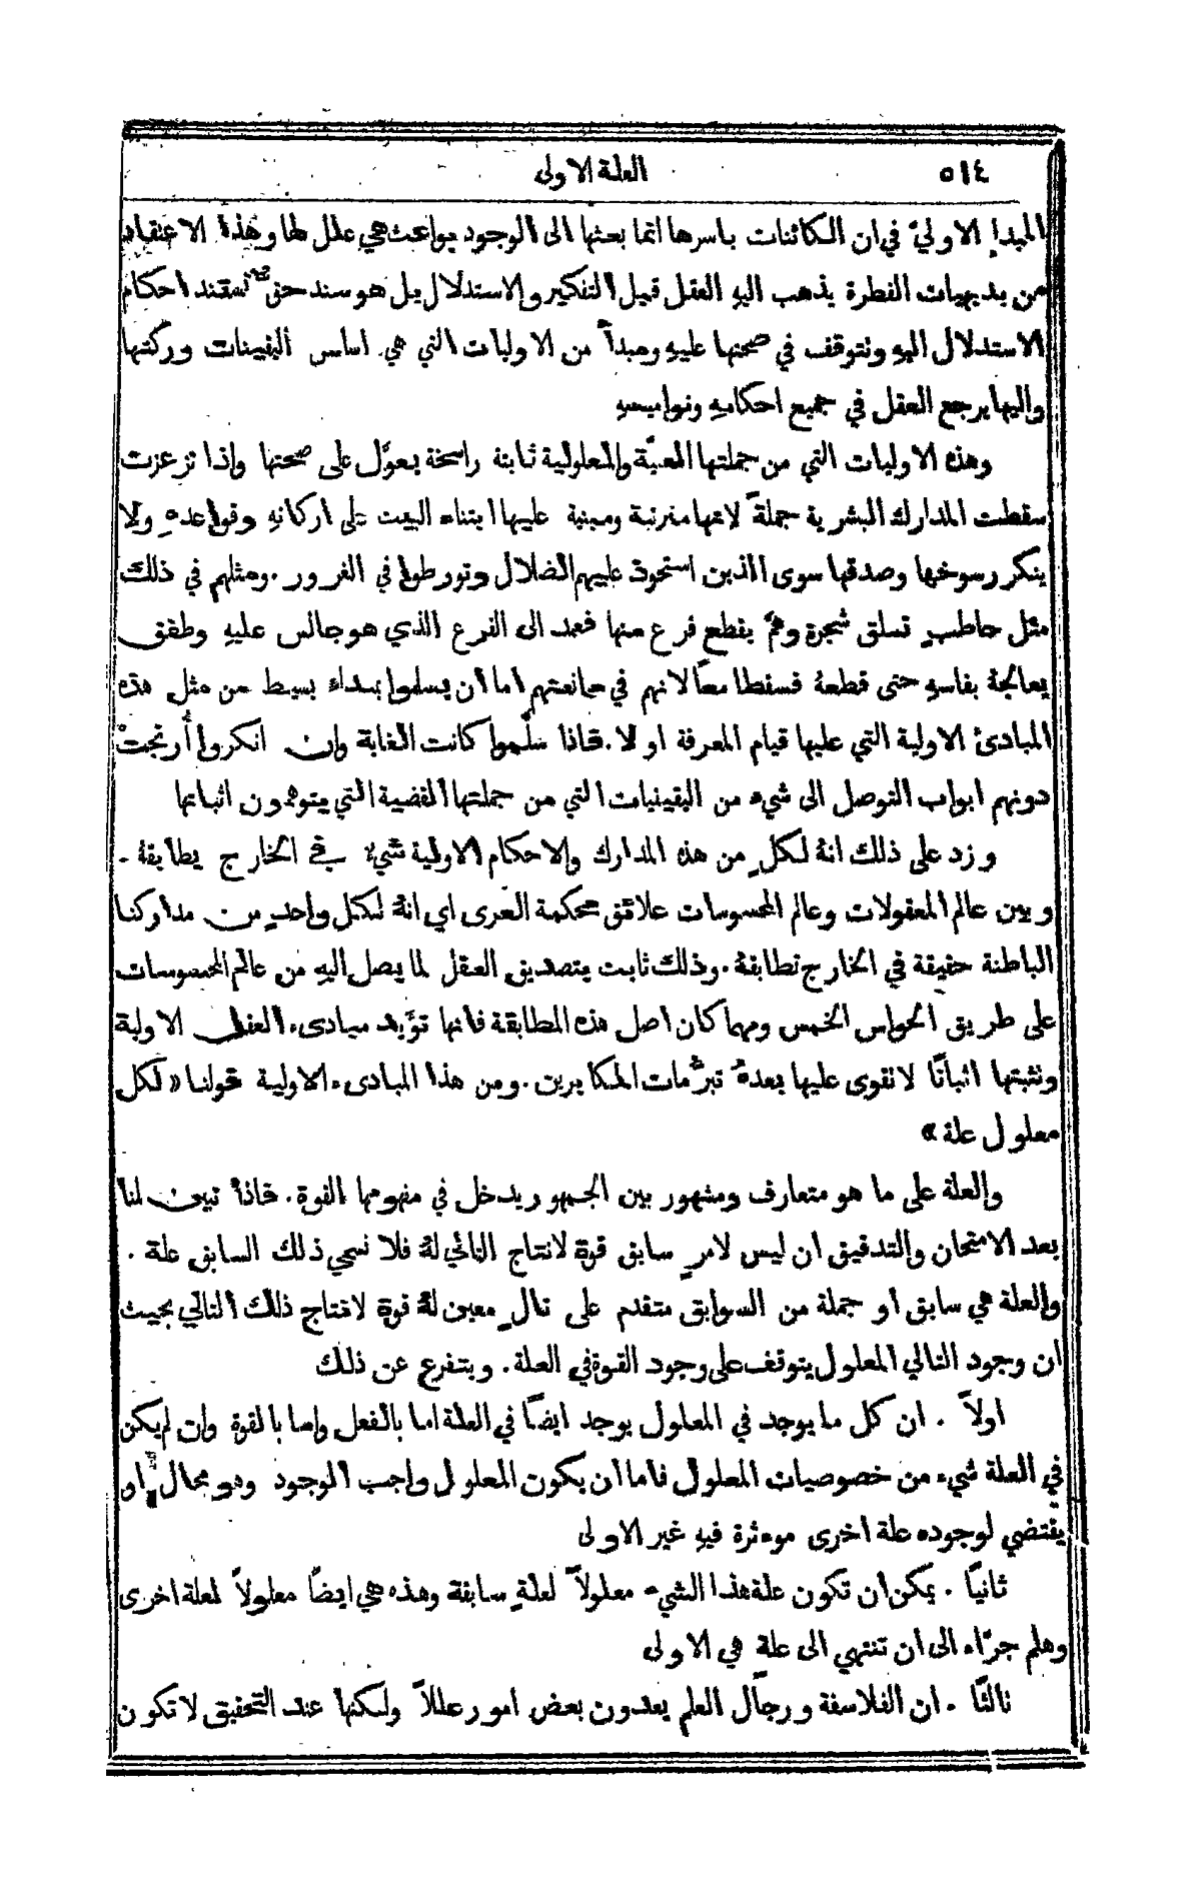 ٥١٤ العلة الاولى
المبدإ الاوليّ في ان الكائنات باسرها انما بعثها الى الوجود بواعث هي علل لها وهذا الاعتقاد
من بديهيات الفطرة يذهب اليهِ العقل قبل التفكير والاستدلال بل هو سند حق تستند احكام
الاستدلال اليهِ ونتوقف في صحتها عليهِ ومبدأ من الاوليات التي هي اساس اليقينات وركنها
واليها يرجع العقل في جميع احكامهِ ونواميسهِ
وهذه الاوليات التي من جملتها المعيّة والمعلولية ثابتة راسخة يعوَّل على صحتها واذا تزعزعت
سقطت المدارك البشرية جملةً لانها مترتبة ومبنية عليها ابتناء البيت على اركانهِ وقواعدهِ ولا
ينكر رسوخها وصدقها سوى الذين استحوذ عليهم الضلال وتورطوا في الغرور . ومثلهم في ذلك
مثل حاطبٍ تسلق شجرة وهمَّ بقطع فرع منها فعمد الى الفرع الذي هو جالس عليهِ وطفق
يعالجهُ بفاسهِ حتى قطعهُ فسقطا معًا لانهم في ممانعتهم اما ان يسلموا بمبداء بسيط من مثل هذه
المبادئ الاولية التي عليها قيام المعرفة او لا . فاذا سلَّموا كانت الغاية وان انكروا أُرتجتْ
دونهم ابواب التوصل الى شيء من اليقينيات التي من جملتها القضية التي يتوهمون اثباتها
وزد على ذلك انهُ لكلٍ من هذه المدارك والاحكام الاولية شيءٌ في الخارج يطابقهُ .
وبين عالم المعقولات وعالم المحسوسات علائق محكمة العرى اي انهُ لكل واحدٍ من مداركنا
الباطنة حقيقة في الخارج تطابقهُ . وذلك ثابت بتصديق العقل لما يصل اليهِ من عالم المحسوسات
على طريق الحواس الخمس ومهما كان اصل هذه المطابقة فانها تؤيد مبادىء العقل الاولية
ونثبتها اثباتًا لا نقوى عليها بعدهُ تبرُّمات المكابرين . ومن هذا المبادىء الاولية قولنا « لكل
معلول علة »
والعلة على ما هو متعارف ومشهور بين الجمهور يدخل في مفهومها القوة . فاذا تبين لنا
بعد الامتحان والتدقيق ان ليس لامرٍ سابق قوة لانتاج التالي لهُ فلا نسمي ذلك السابق علة .
والعلة هي سابق او جملة من السوابق متقدم على تالٍ معين لهُ قوة لانتاج ذلك التالي بحيث
ان وجود التالي المعلول يتوقف على وجود القوة في العلة . ويتفرع عن ذلك
اولاً . ان كل ما يوجد في المعلول يوجد ايضًا في العلة اما بالفعل واما بالقوة وان لم يكن
في العلة شيء من خصوصيات المعلول فاما ان يكون المعلول واجب الوجود وهو محال او
يقتضي لوجوده علة اخرى موءثرة فيهِ غير الاولى
ثانيًا . يمكن ان تكون علة هذا الشيء معلولاً لعلةٍ سابقة وهذه هي ايضًا معلولاً لعلة اخرى
وهلم جرّاء الى ان تنتهي الى علة هي الاولى
ثالثًا . ان الفلاسفة ورجال العلم يعدون بعض امور عللاً ولكنها عند التحقيق لا تكون